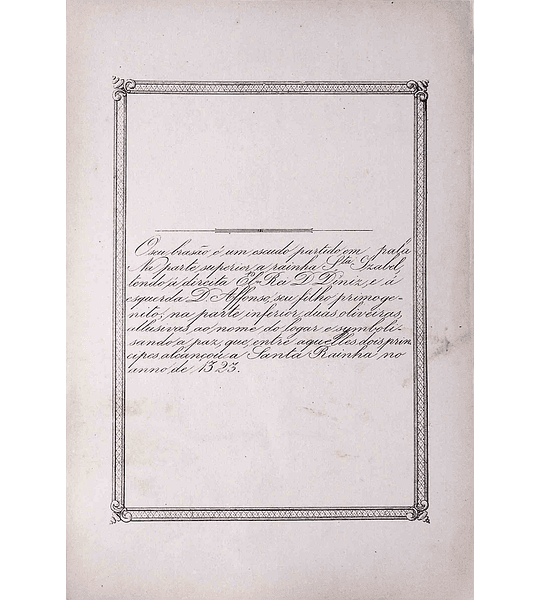 O seu brasão é um escudo partido em pala
Na parte superior a rainha S.ta Izabel,
tendo á direita El-Rei D. Diniz, e á
esquerda D. Affonso, seu filho primoge-
neto; na parte inferior, duas oliveiras,
allusivas ao nome do logar e symboli-
sando a paz, que, entre aquelles dois prin
cipes alcançou a Santa Rainha no
anno de 1323.